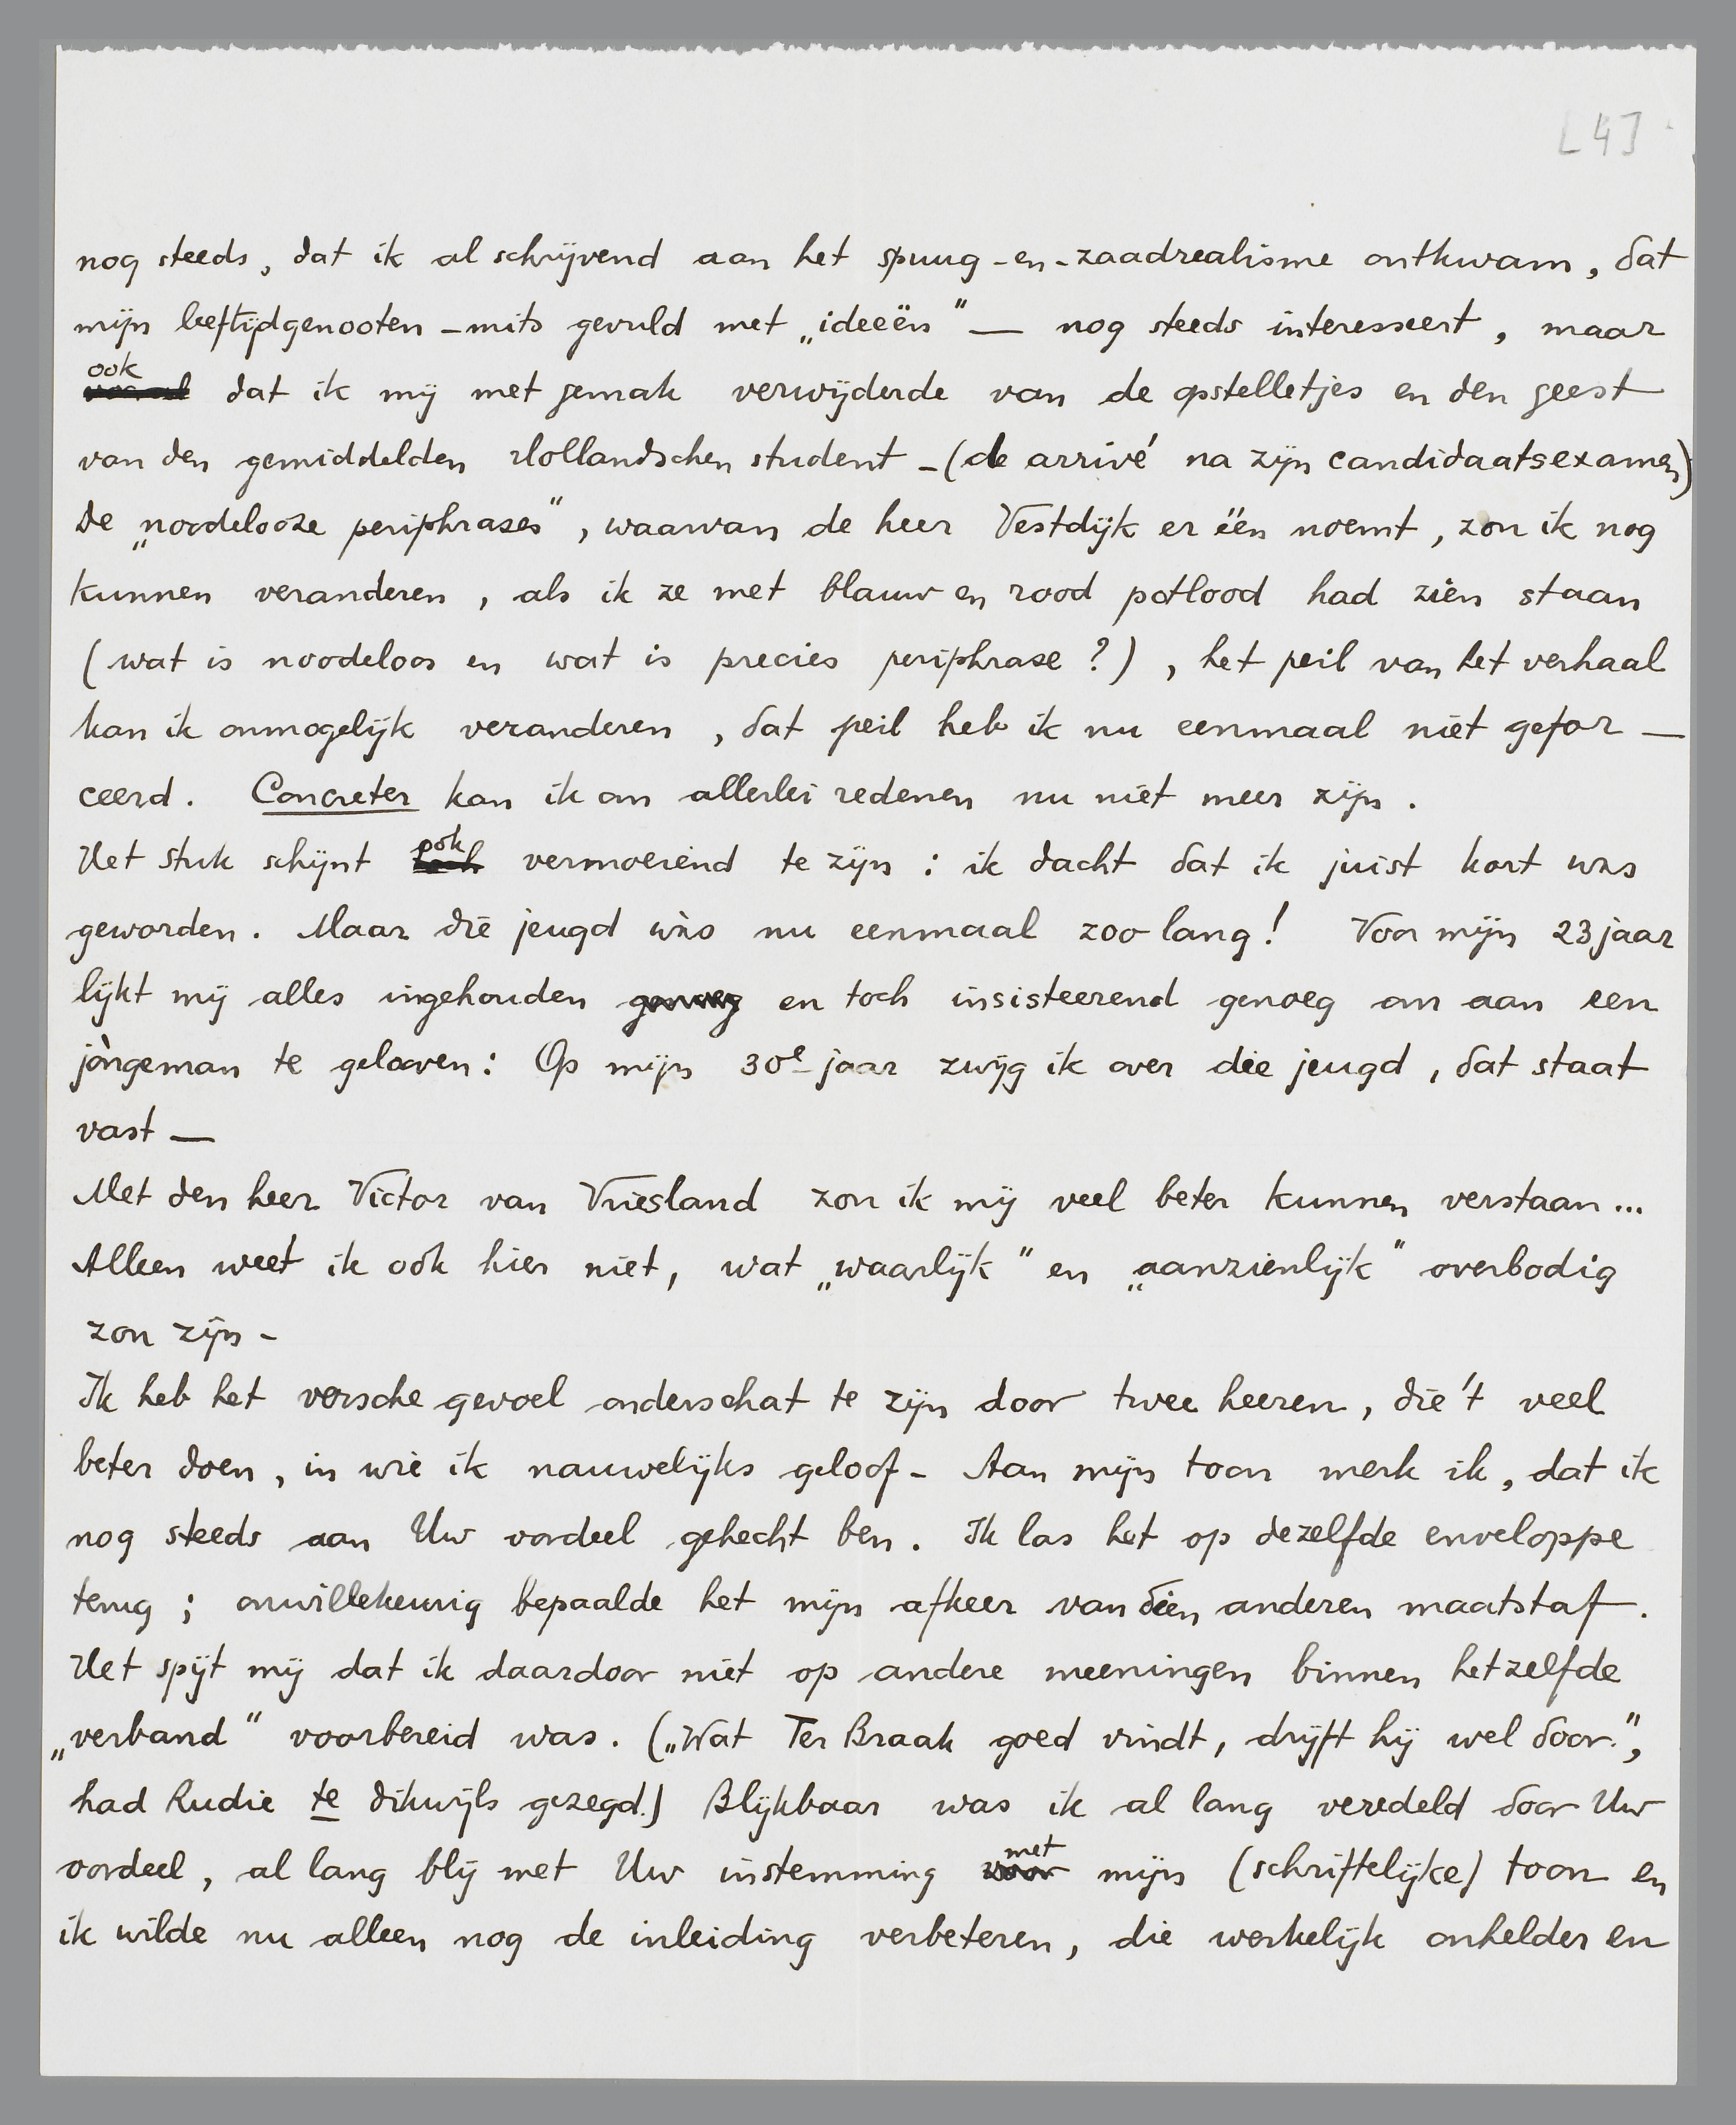 [4]
nog steeds, dat ik al schrijvend aan het spuug-en-zaadrealisme ontkwam, dat
mijn leeftijdgenooten – mits gevuld met „ideeën” — nog steeds interesseert, maar
ook dat ik mij met gemak verwijderde van de opstelletjes en den geest
van den gemiddelden Hollandschen student – (de arrivé na zijn candidaatsexamen)
De „noodelooze periphrases”, waarvan de heer Vestdijk er één noemt, zou ik nog
kunnen veranderen, als ik ze met blauw en rood potlood had zien staan
(wat is noodeloos en wat is precies periphrase?), het peil van het verhaal
kan ik onmogelijk veranderen, dat peil heb ik nu eenmaal niet gefor—
ceerd. Concreter kan ik om allerlei redenen nu niet meer zijn.
Het stuk schijnt ook vermoeiend te zijn: ik dacht dat ik juist kort was
geworden. Maar die jeugd wàs nu eenmaal zoo lang! Voor mijn 23 jaar
lijkt mij alles ingehouden genoeg en toch insisteerend genoeg om aan een
jòngeman te gelooven: Op mijn 30e jaar zwijg ik over die jeugd, dat staat
vast —
Met den heer Victor van Vriesland zou ik mij veel beter kunnen verstaan...
Alleen weet ik ook hier niet, wat „waarlijk” en „aanzienlijk” overbodig
zou zijn –
Ik heb het versche gevoel onderschat te zijn door twee heeren, die 't veel
beter doen, in wie ik nauwelijks geloof – Aan mijn toon merk ik, dat ik
nog steeds aan Uw oordeel gehecht ben. Ik las het op dezelfde enveloppe
terug; onwillekeurig bepaalde het mijn afkeer van dien anderen maatstaf.
Het spijt mij dat ik daardoor niet op andere meeningen binnen hetzelfde
„verband” voorbereid was. („Wat Ter Braak goed vindt, drijft hij wel door.”,
had Rudie te dikwijls gezegd.) Blijkbaar was ik al lang veredeld door Uw
oordeel, al lang blij met Uw instemming met mijn (schriftelijke) toon en
ik wilde nu alleen nog de inleiding verbeteren, die werkelijk onhelder en